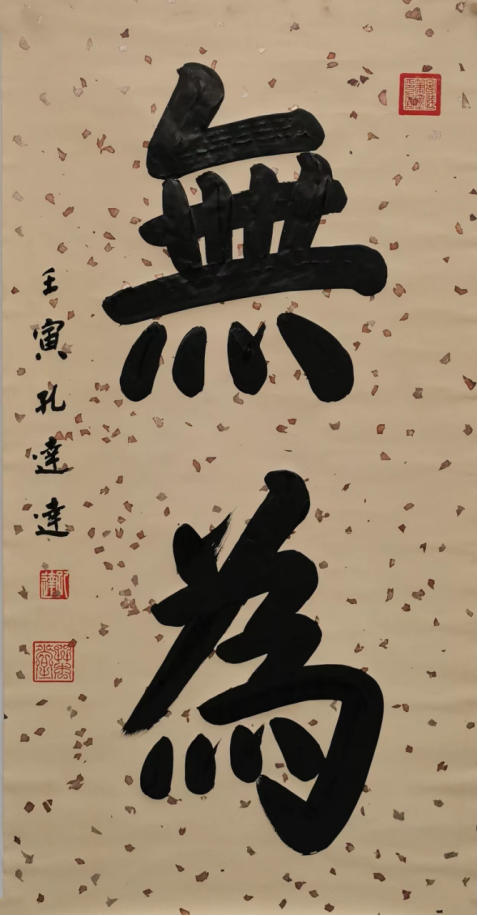 無為
壬寅孔達達